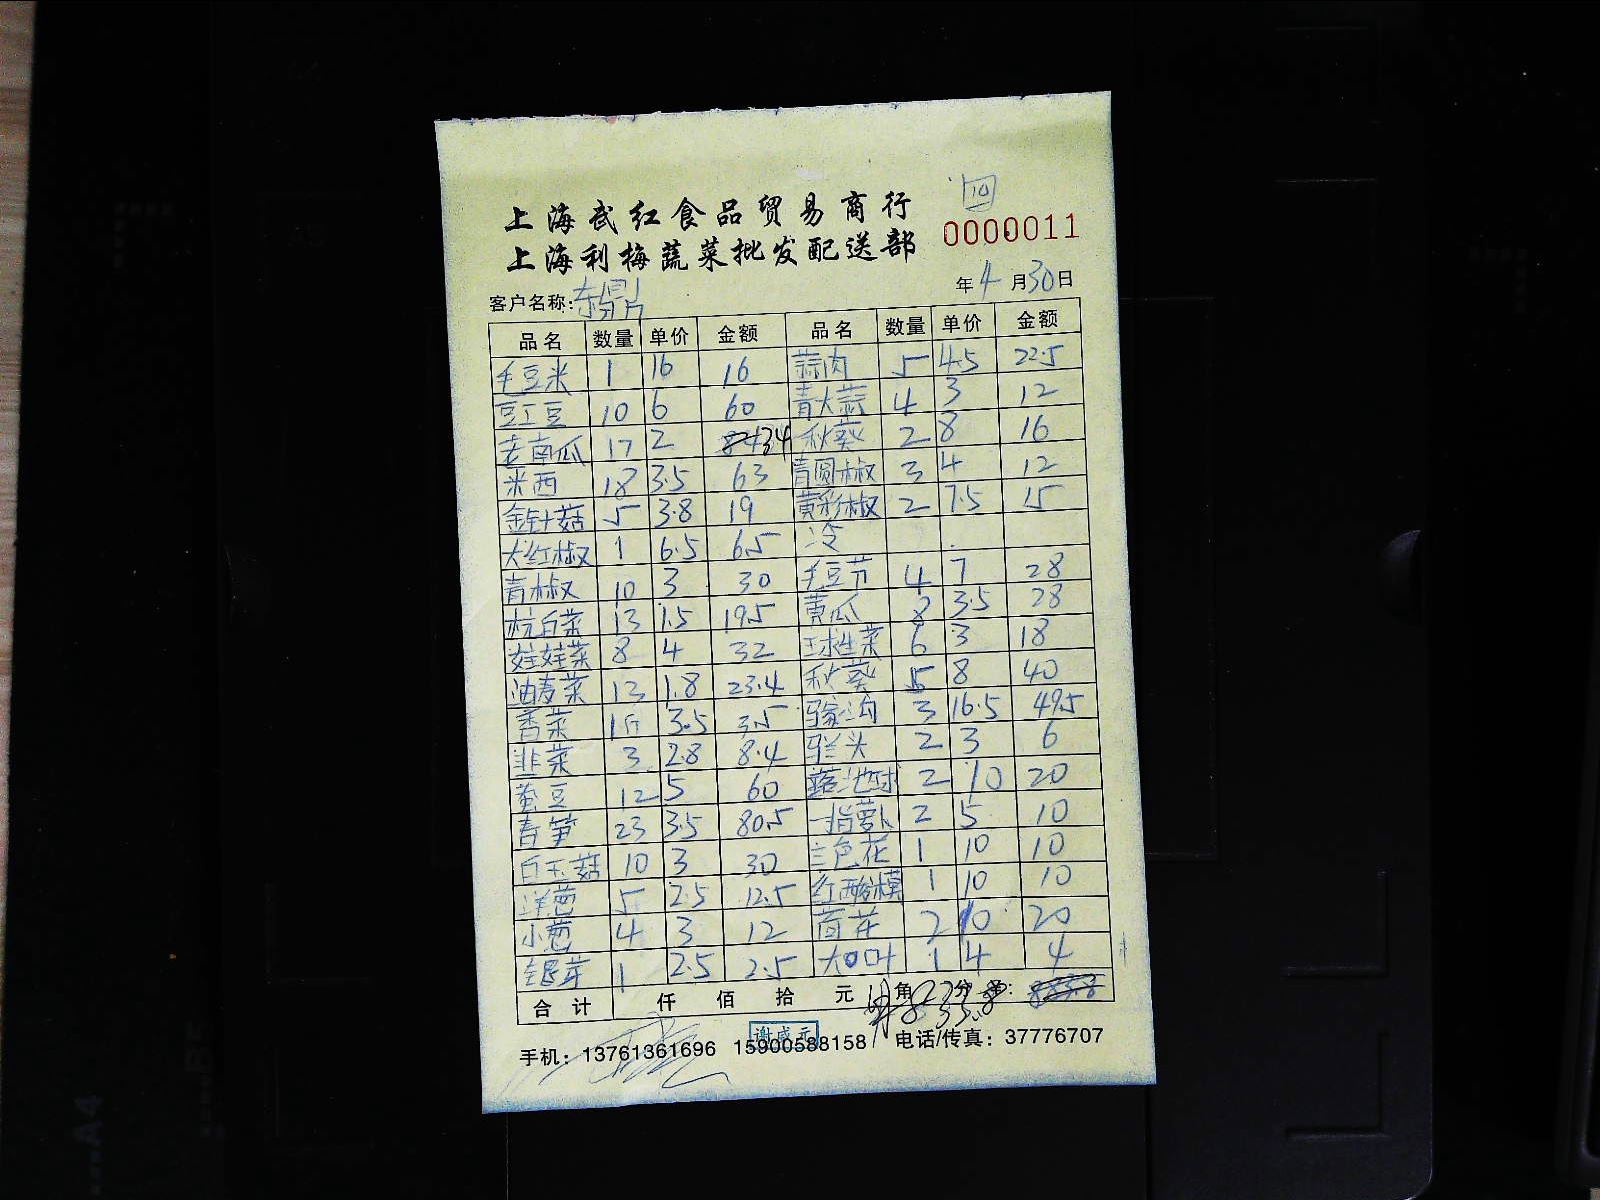 10
上海武红食品贸易商行
0000011
上海利梅蔬菜批发配送部
年4月30日
客户名称:东鼎
品名 数量 单价 金额 品名 数量 单价 金额
毛豆米 1 16 16 蒜肉 5 4.5 22.5
豇豆 10 6 60 青大蒜 4 3 12
老南瓜 17 2 34 秋葵 2 8 16
米西 18 3.5 63 青圆椒 3 4 12
金针菇 5 3.8 19 黄彩椒 2 7.5 15
大红椒 1 6.5 6.5 冷
青椒 10 3 30 毛豆节 4 7 28
杭白菜 13 1.5 19.5 黄瓜 8 3.5 28
娃娃菜 8 4 32 球生菜 6 3 18
油麦菜 13 1.8 23.4 秋葵 5 8 40
香菜 1斤 3.5 3.5 3 16.5 49.5
韭菜 3 2.8 8.4 兰头 2 3 6
蚕豆 12 5 60 2 10 20
青笋 23 3.5 80.5 一指萝卜 2 5 10
白玉菇 10 3 30 三色花 1 10 10
洋葱 5 2.5 12.5 红酸模 1 10 10
小葱 4 3 12 荷花 2 10 20
银芽 1 2.5 2.5 大叶 1 4 4
合计 仟 佰 拾 元 角 分 833.8
谢咸元
手机：13761361696 15900588158 电话/传真：37776707